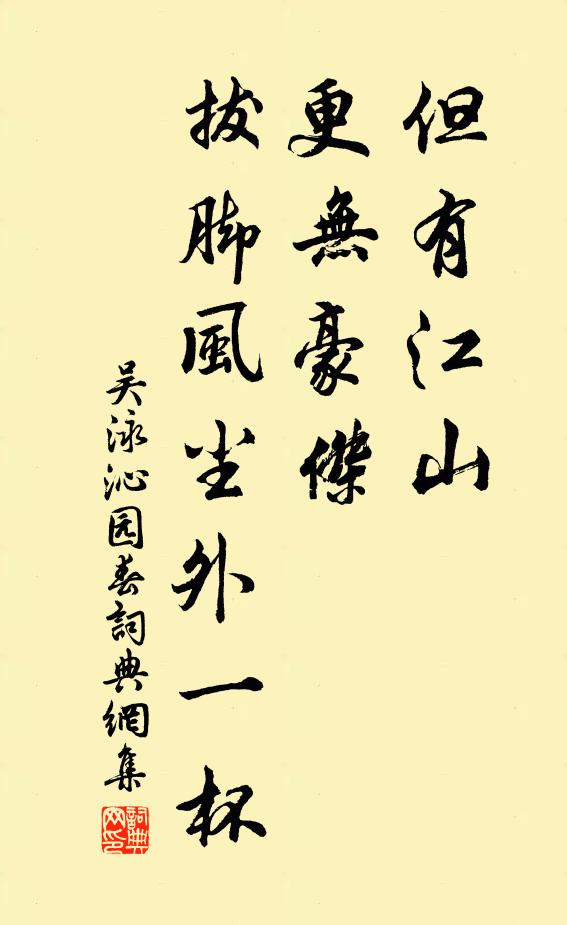 但有江山
更無豪傑
拔脚風尘外一杯
吴泳沁园春詞典網集
詞典网印